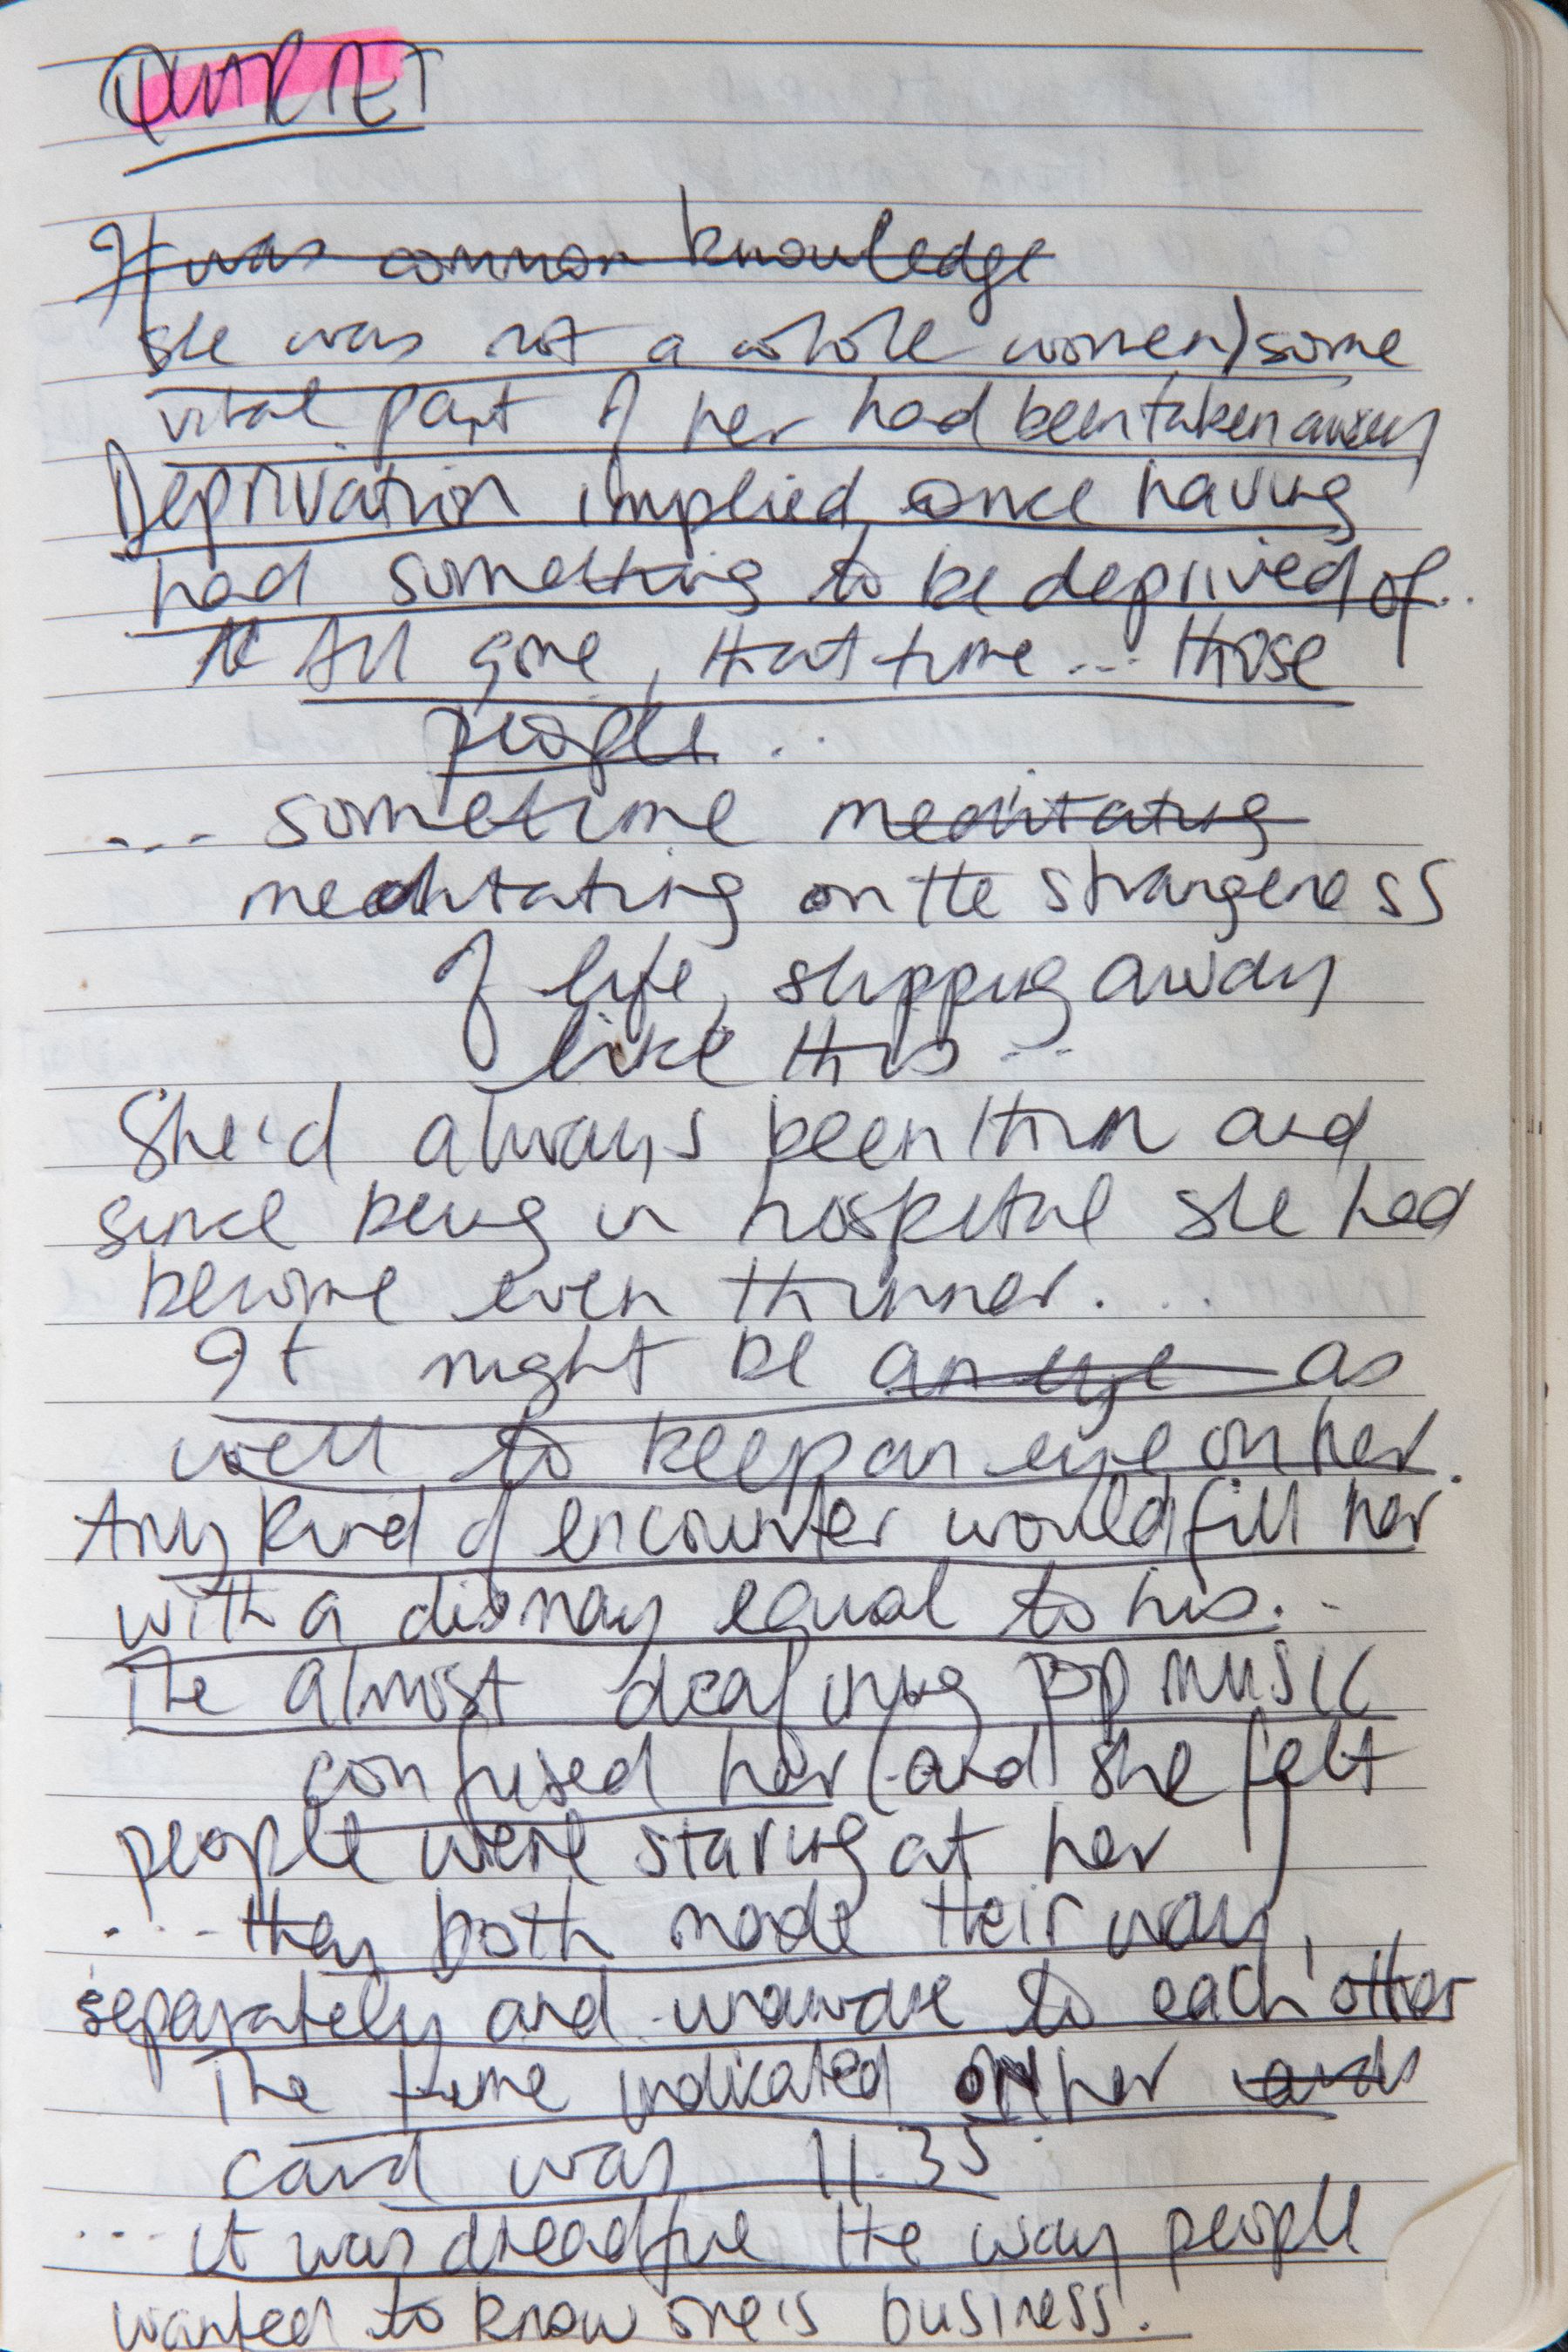 QUARTET
It was common knowledge
she was not a whole women) some
vital part of her had been taken away
Deprivation implied once having
had something to be deprived of...
All gone, that time... those
people...
... sometime meditating
meditating on the strangeness
of life, slipping away
like this...
She'd always been thin and
since being in hospital she had
become even thinner....
It might be an eye as
well to keep an eye on her.
Any kind of encounter would fill her
with a dismay equal to his...
The almost deafining pop music
confused her (and she felt
people were staring at her
.... they both made their way,
separately and unaware to each other
The time indicated ON her
card was 11.35.
... it was dreadful the way people
wanted to know one's business.